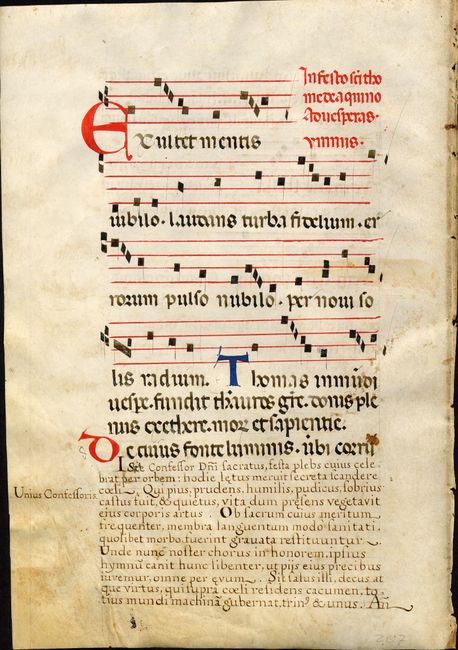 In festo sci tho
me de aquino
Ad vesperas.
ymnus.
Exultet mentis
iubilo. laudans turba fidelium. er
rorum pulso nubilo. per noui so
lis radium. Thomas in mundi
uespe. fundit thauros gre. donis ple
nus ex ethere. mor et sapientie.
De cuius fonte luminis. ubi corrus
Iste Confessor Dñi sacratus, festa plebs cuius cele
brat per orbem: hodie letus meruit secreta scandere
cœli. Qui pius, prudens, humilis, pudicus, sobrius
castus fuit, & quietus, vita dum presens vegetavit
Unius Confessoris.
eius corporis artus. Ob sacrum cuius meritum
frequenter, membra languentum modo sanitati,
quolibet morbo fuerint gravata restituuntur.
Unde nunc noster chorus in honorem, ipsius
hymnũ canit hunc libenter, ut pijs eius precibus
iuvemur, omne per ęvum. Sit salus illi, decus, at
que virtus, qui supra cœli residens cacumen, to
tius mundi machinã gubernat, trinꝰ & unus. Añ